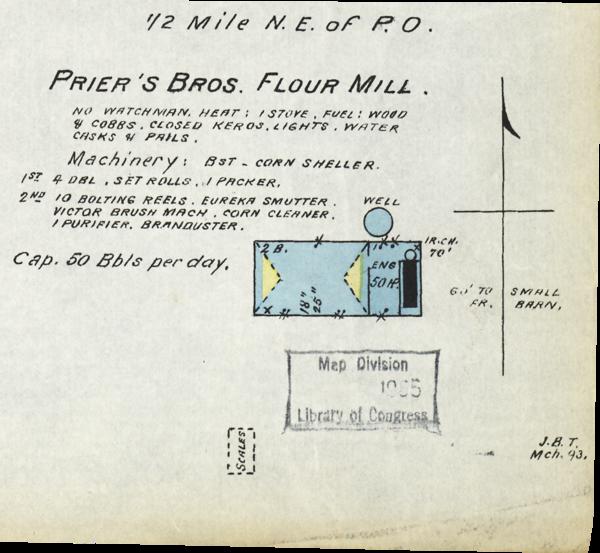 1/2 Mile N.E. of P.O.
PRIER'S BROS. FLOUR MILL.
NO WATCHMAN. HEAT: 1 STOVE. FUEL: WOOD
& COBBS. CLOSED KEROS. LIGHTS. WATER
CASKS & PAILS.
Machinery: BST - CORN SHELLER.
1ST 4 DBL. SET ROLLS. 1 PACKER.
2ND 10 BOLTING REELS. EUREKA SMUTTER.
VICTOR BRUSH MACH. CORN CLEANER.
1 PURIFIER. BRANDUSTER.
WELL
Cap. 50 Bbls per day.
2 B.
IR.CH.
70'
ENG
50 HP.
18"
25"
60' TO SMALL
FR. BARN.
Map Division
Library of Congress
SCALES
J.B.T.
Mch. 93.